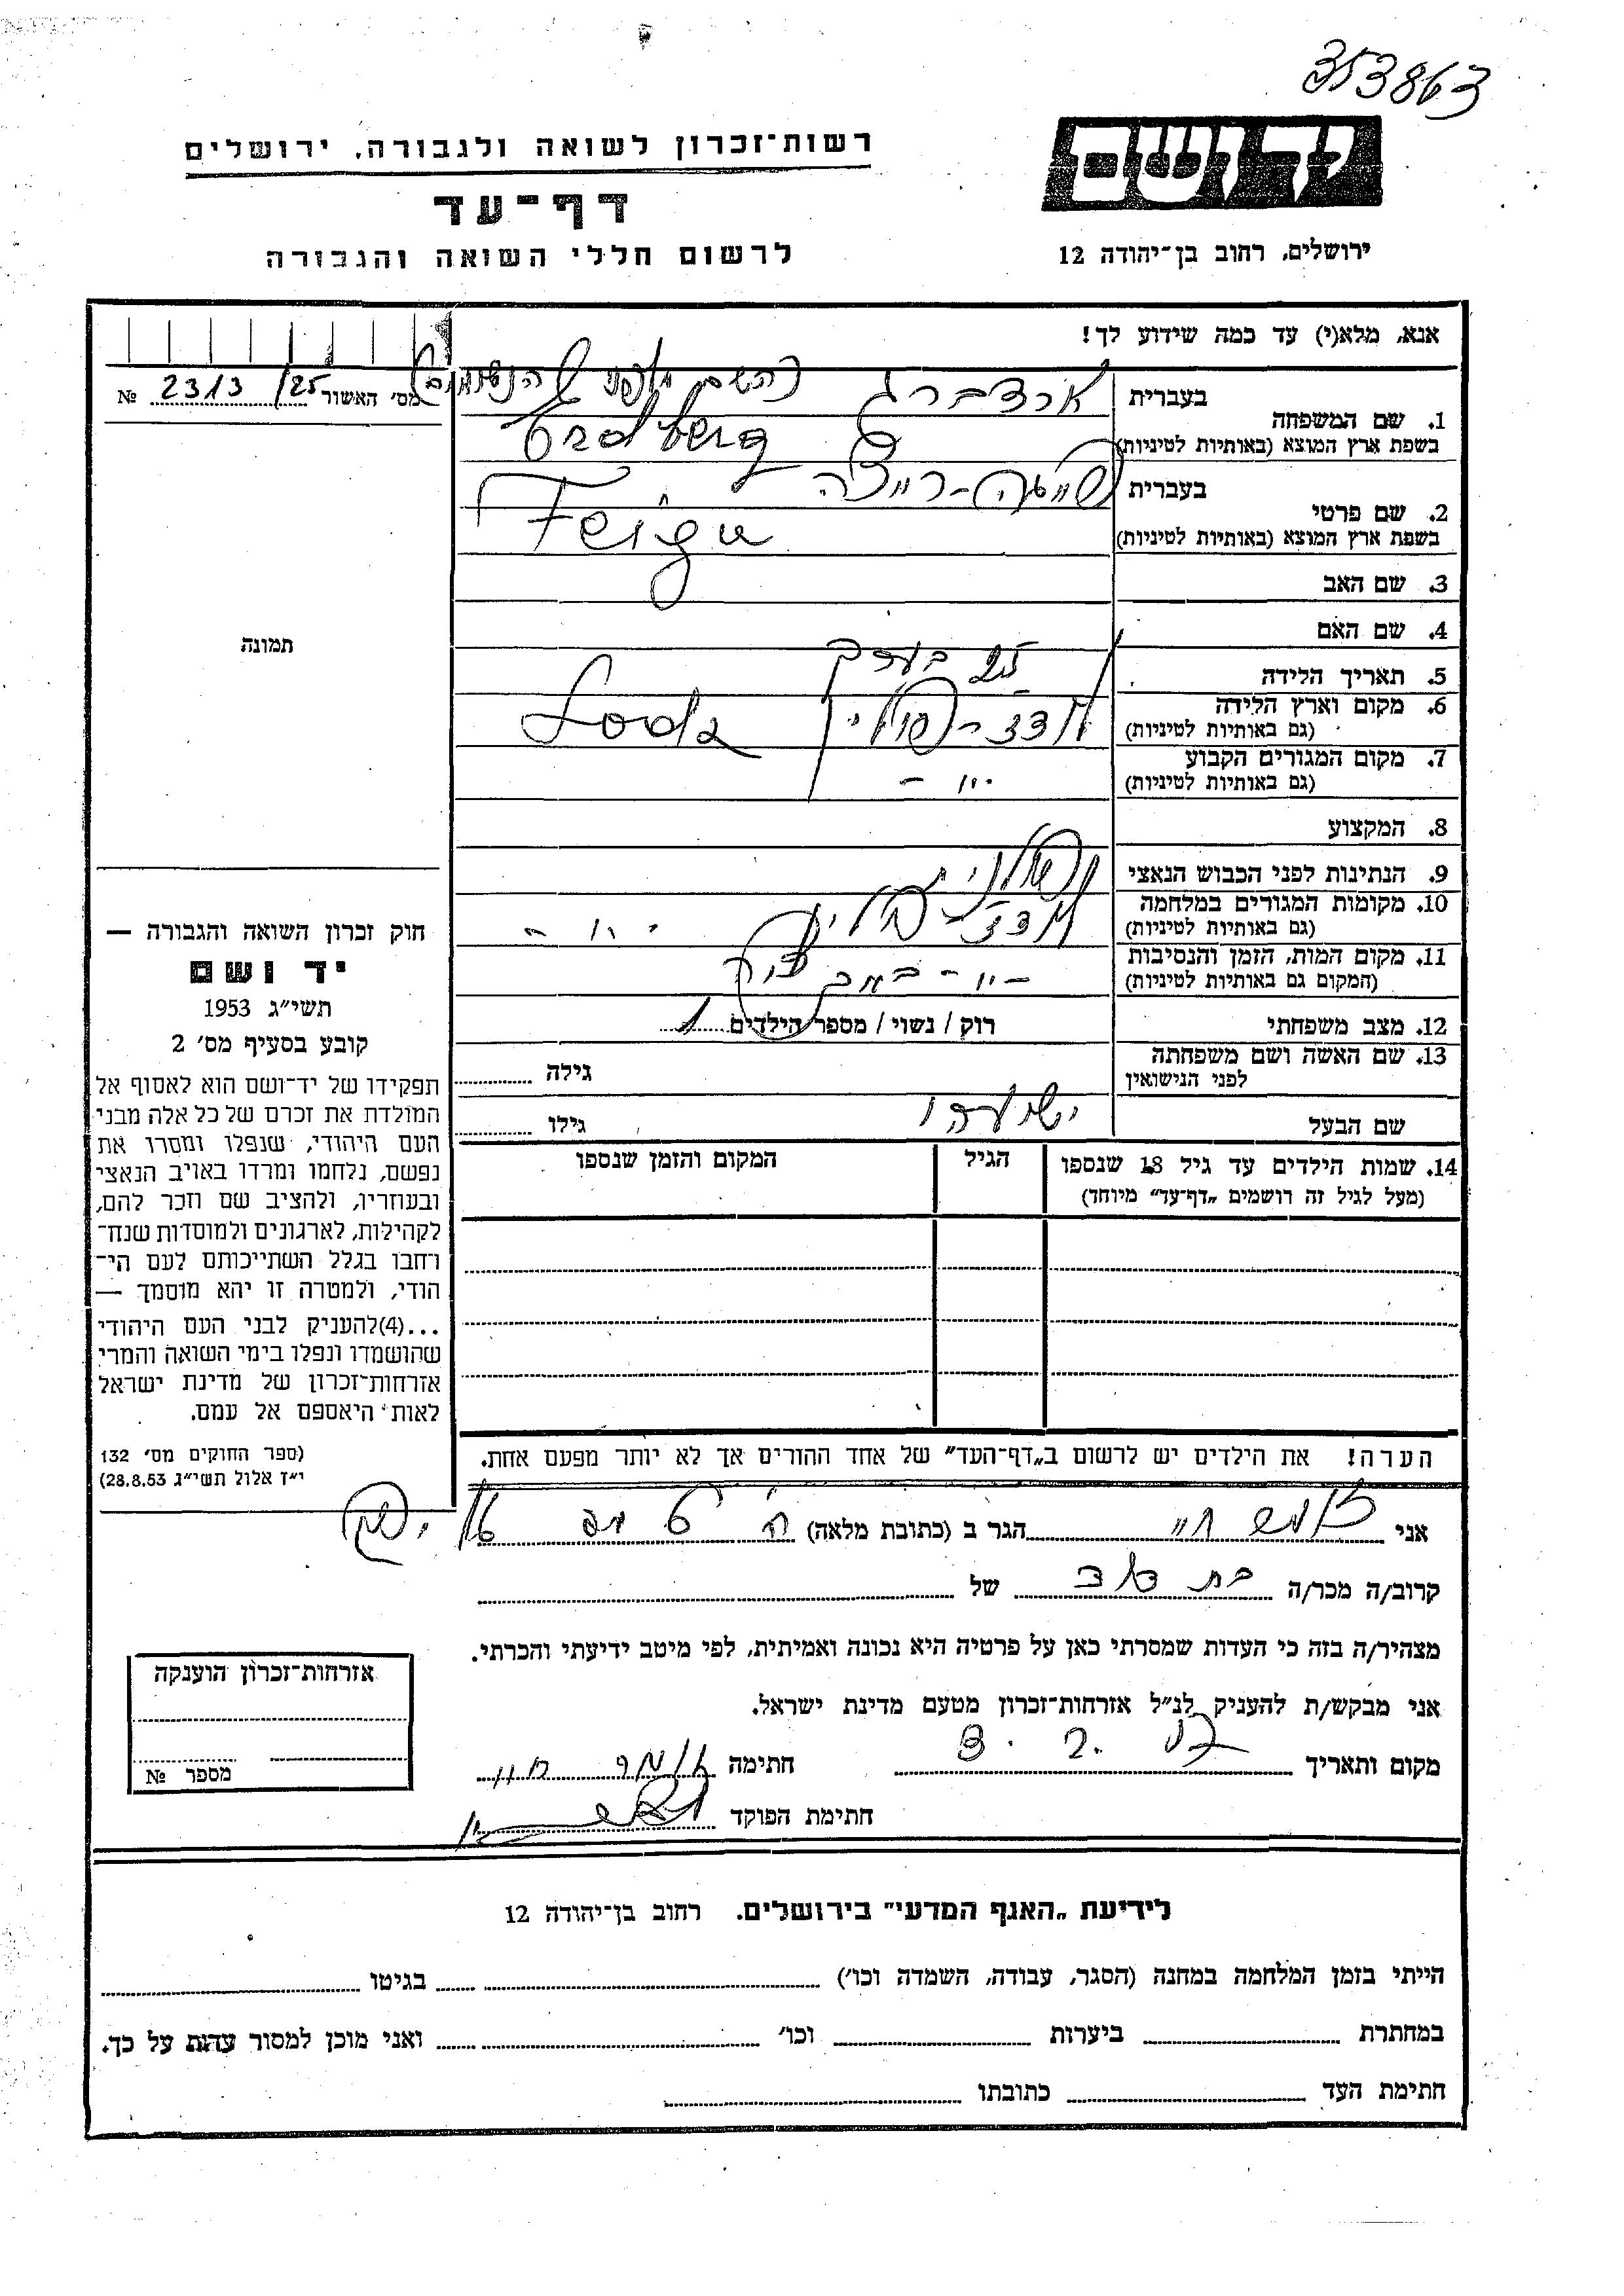 353863
יד ושם
רשות-זכרון לשואה ולגבורה, ירושלים
דף-עד
לרשום חללי השואה והגבורה
ירושלים, רחוב בן-יהודה 12
אנא, מלא(י) עד כמה שידוע לך!
מס׳ האשור 2313/25 №
1. שם המשפחה
בעברית ארדברג (השם לפני הנשואים)
בשפת ארץ המוצא (באותיות לטיניות) Erdberg
2. שם פרטי
בעברית פייגה-
בשפת ארץ המוצא (באותיות לטיניות) Feiga
3. שם האב
4. שם האם
תמונה
5. תאריך הלידה 25 בערך
6. מקום וארץ הלידה
(גם באותיות לטיניות) לודז - פולין Lodz
7. מקום המגורים הקבוע
(גם באותיות לטיניות) - יי -
8. המקצוע
9. הנתינות לפני הכבוש הנאצי פולנית
10. מקומות המגורים במלחמה
(גם באותיות לטיניות) לודז - פולין - יי -
11. מקום המות, הזמן והנסיבות
(המקום גם באותיות לטיניות) - יי -
12. מצב משפחתי רוק / נשוי / מספר הילדים 1
13. שם האשה ושם משפחתה
לפני הנישואין
גילה
שם הבעל ישעיהו גילו
14. שמות הילדים עד גיל 18 שנספו
(מעל לגיל זה רושמים „דף-עד” מיוחד)
הגיל
המקום והזמן שנספו
הערה! את הילדים יש לרשום ב„דף-העד” של אחד ההורים אך לא יותר מפעם אחת.
חוק זכרון השואה והגבורה —
יד ושם
תשי״ג 1953
קובע בסעיף מס׳ 2
תפקידו של יד-ושם הוא לאסוף אל
המולדת את זכרם של כל אלה מבני
העם היהודי, שנפלו ומסרו את
נפשם, נלחמו ומרדו באויב הנאצי
ובעוזריו, ולהציב שם וזכר להם,
לקהילות, לארגונים ולמוסדות שנח-
רחבו בגלל השתייכותם לעם הי-
הודי, ולמטרה זו יהא מוסמך —
...(4)להעניק לבני העם היהודי
שהושמדו ונפלו בימי השואה והמרי
אזרחות-זכרון של מדינת ישראל
לאות היאספם אל עמם.
(ספר החוקים מס׳ 132
י״ז אלול תשי״ג 28.8.53)
אני הגר ב (כתובת מלאה)
קרוב/ה מכר/ה בת דוד של
מצהיר/ה בזה כי העדות שמסרתי כאן על פרטיה היא נכונה ואמיתית, לפי מיטב ידיעתי והכרתי.
אני מבקש/ת להעניק לנ״ל אזרחות-זכרון מטעם מדינת ישראל.
מקום ותאריך חתימה
חתימת הפוקד
אזרחות-זכרון הוענקה
מספר №
לידיעת „האגף המדעי” בירושלים. רחוב בן-יהודה 12
הייתי בזמן המלחמה במחנה (הסגר, עבודה, השמדה וכו׳) בגיטו
במחתרת ביערות וכו׳ ואני מוכן למסור עדות על כך.
חתימת העד כתובתו